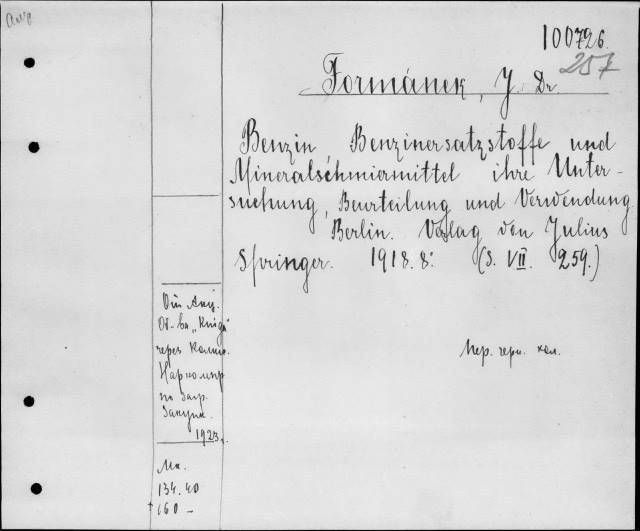 100726.
257
Formánek, J. Dr.
Benzin, Benzinersatzstoffe und
Mineralschmiermittel ihre Unter-
suchung, Beurteilung und Verwendung.
Berlin. Verlag von Julius
Springer. 1918. 8º. (S. VII. 259.)
Від Акц.
От-ва „Книга"
через Комис.
Наркомпр
по Загр.
Закупк.
1923.
Пер. черн. кол.
Мк.
134.40
+ 60 –